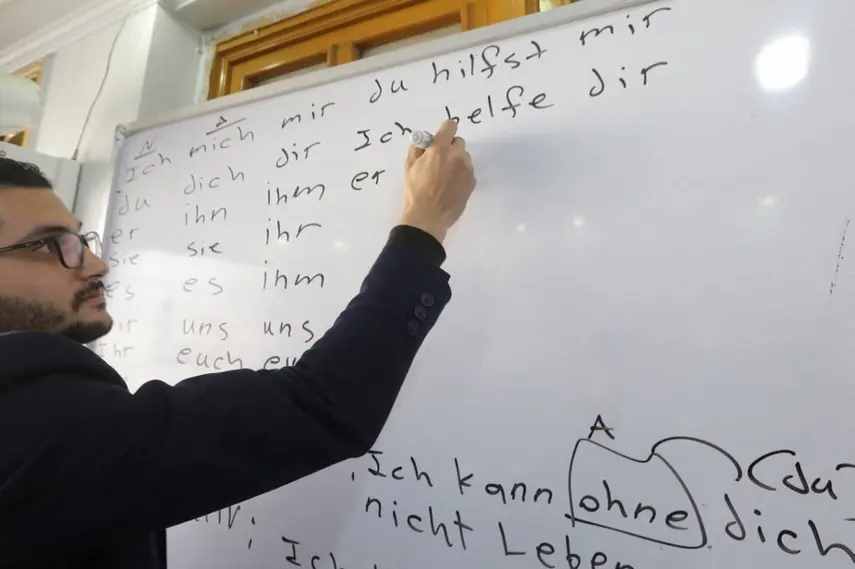 N A
Ich mich mir du hilfst mir
du dich dir Ich helfe dir
er ihn ihm er
sie sie ihr
es es ihm
uns uns
Ihr euch
A
Ich kann ohne (du
nicht Leben dich
Ich